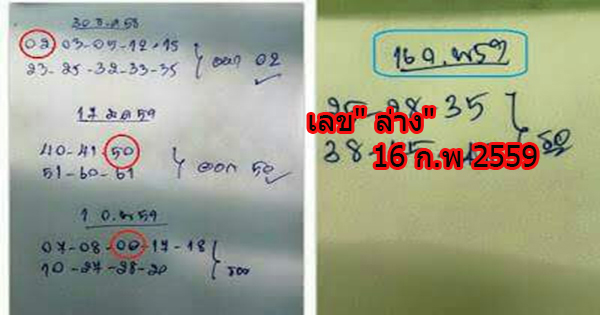 30 ธ.ค 58
02 03-05-12-15
23-25-32-33-35
ออก 02
17 ม.ค 59
40-41-50
51-60-61
ออก 50
1 ก.พ 59
07-08-00-17-18
10-27-28-20
รอง
16 ก.พ 59
25-28-35
38
รอง
เลข" ล่าง"
16 ก.พ 2559